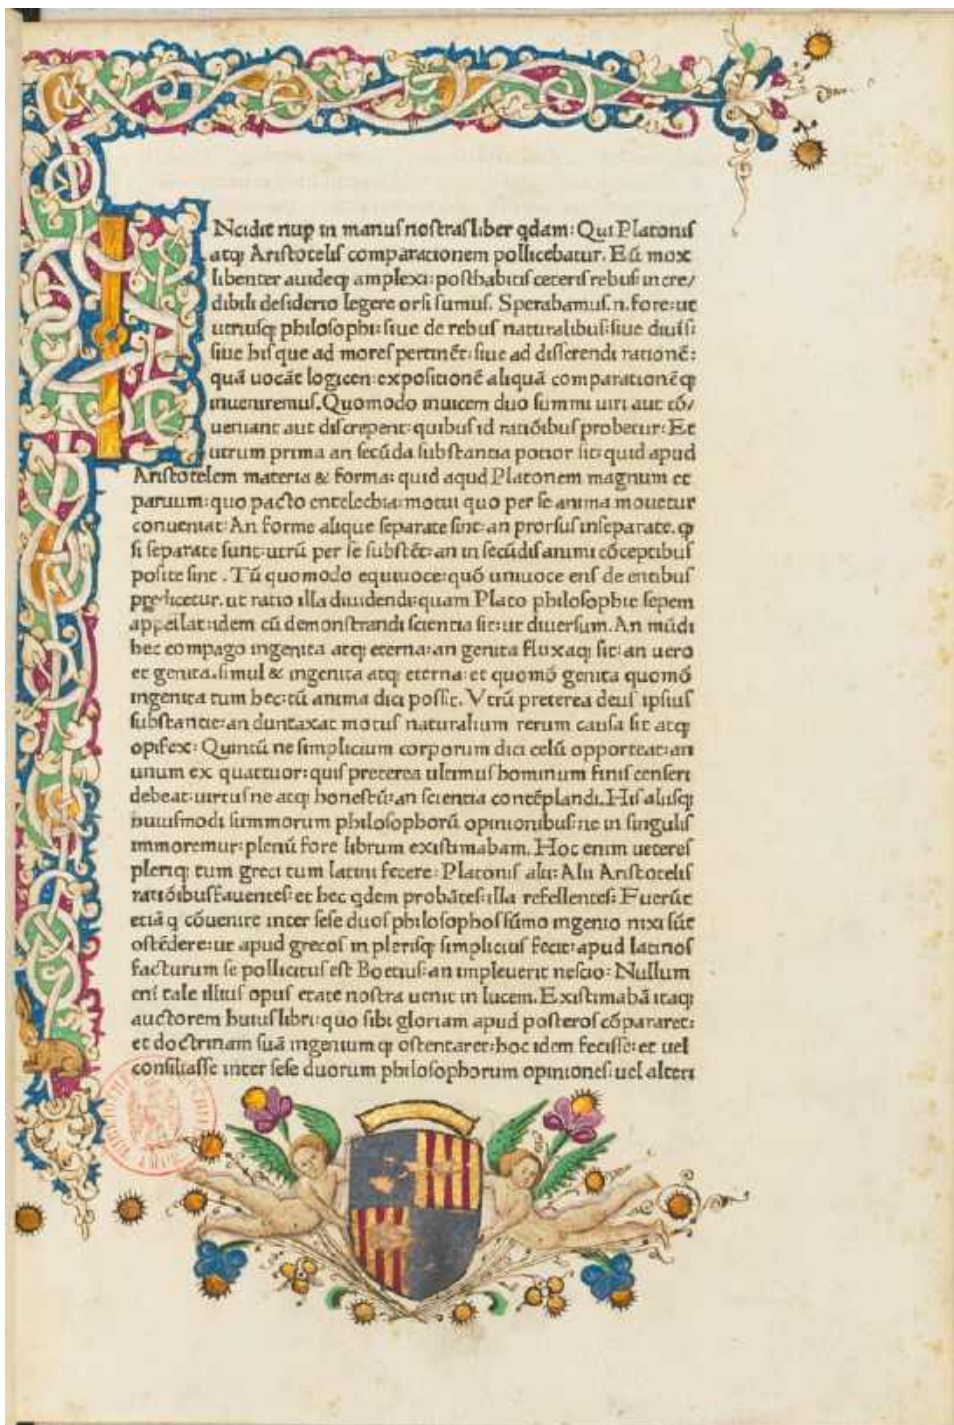 INcidit nup in manus nostras liber qdam: Qui Platonis
atqꝫ Aristotelis comparationem pollicebatur. Eū mox
libenter auideqꝫ amplexi: posthabitis ceteris rebus: incre/
dibili desiderio legere orsi sumus. Sperabamus .n. fore: ut
utriusqꝫ philosophi: siue de rebus naturalibus: siue diuīs:
siue his que ad mores pertinēt: siue ad disserendi rationē:
quā uocāt logicen: expositionē aliquā comparationēqꝫ
inueniremus. Quomodo inuicem duo summi uiri aut cō/
ueniant aut discrepent: quibus id ratiōibus probetur: Et
utrum prima an secūda substantia potior sit: quid apud
Aristotelem materia & forma: quid aqud Platonem magnum et
paruum: quo pacto entelechia: motui quo per se anima mouetur
conueniat: An forme alique separate sint: an prorsus inseparate. qꝫ
si separate sunt: utrū per se substēt: an in secūdis animi cōceptibus
posite sint . Tū quomodo equiuoce: quō uniuoce ens de entibus
predicetur. ut ratio illa diuidendi: quam Plato philosophie sepem
appellat: idem cū demonstrandi scientia sit: ut diuersum. An mūdi
hec compago ingenita atqꝫ eterna: an genita fluxaqꝫ sit: an uero
et genita. simul & ingenita atqꝫ eterna: et quomō genita quomō
ingenita tum hec: tū anima dici possit. Vtrū preterea deus ipsius
substantie: an duntaxat motus naturalium rerum causa sit atqꝫ
opifex: Quintū ne simplicium corporum dici celū opporteat: an
unum ex quattuor: quis preterea ultimus hominum finis censeri
debeat: uirtus ne atqꝫ honestū: an scientia contēplandi. His aliisqꝫ
huiusmodi summorum philosophorū opinionibus: ne in singulis
immoremur: plenū fore librum existimabam. Hoc enim ueteres
pleriqꝫ tum greci tum latini fecere: Platonis alii: Alii Aristotelis
ratiōibus fauentes: et hec qdem probātes: illa refellentes: Fuerūt
etiā q cōuenire inter sese duos philosophos sūmo ingenio nixi sūt
ostēdere: ut apud grecos in plerisqꝫ simplicius fecit: apud latinos
facturum se pollicitus est Boetius: an impleuerit nescio: Nullum
enī tale illius opus etate nostra uenit in lucem. Existimabā itaqꝫ
auctorem huius libri: quo sibi gloriam apud posteros cōpararet:
et doctrinam suā ingenium qꝫ ostentaret: hoc idem fecisse: et uel
consiliasse inter sese duorum philosophorum opiniones: uel alteri